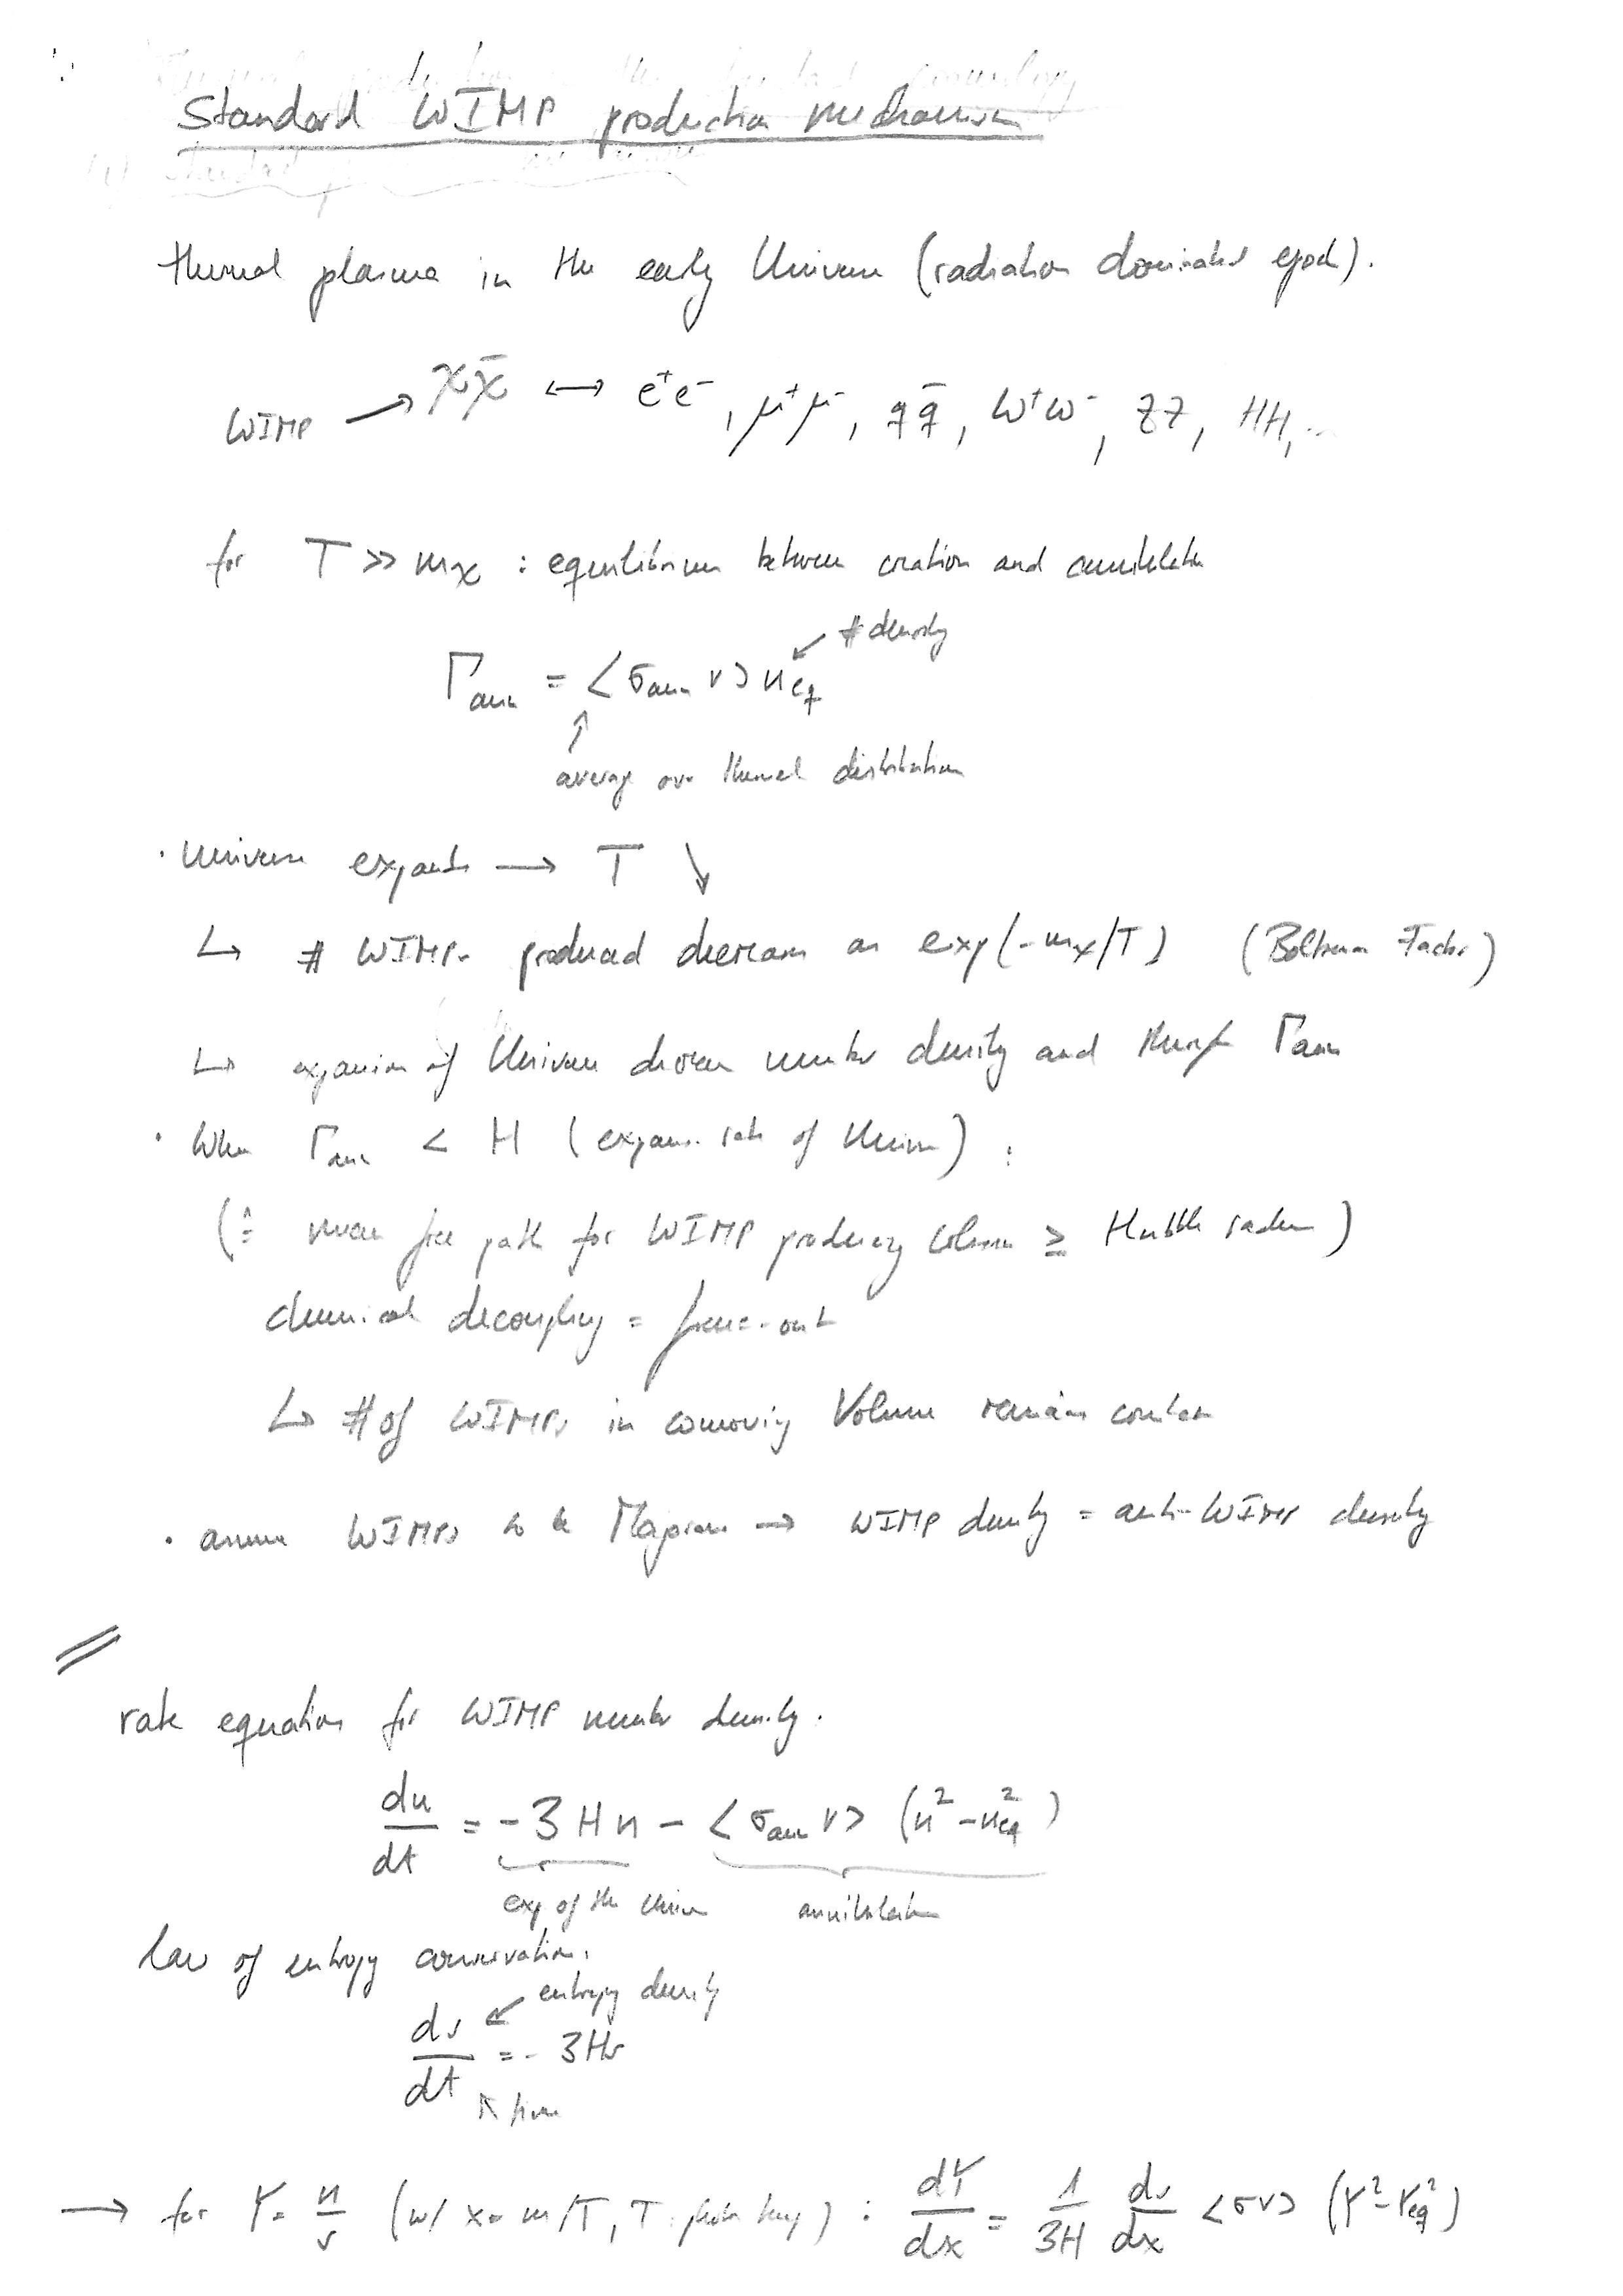 Standard WIMP production mechanism
thermal plasma in the early Universe (radiation dominated epoch).
WIMP → χχ̄ ↔ e⁺e⁻, μ⁺μ⁻, qq̄, W⁺W⁻, ZZ, HH, ...
for T >> mχ : equilibrium between creation and annihilation
# density
Γann = <σann v> neq
average over thermal distribution
· Universe expands → T ↘
↳ # WIMPs produced decreases as exp(-mχ/T) (Boltzmann Factor)
↳ expansion of Universe decreases number density and therefore Γann
· When Γann < H (expans. rate of Universe) :
(≙ mean free path for WIMP producing collisions ≥ Hubble radius)
chemical decoupling = freeze-out
↳ # of WIMPs in comoving Volume remains constant
· assume WIMPs to be Majorana → WIMP density = anti-WIMP density
rate equation for WIMP number density:
dn/dt = -3Hn - <σann v> (n² - neq²)
exp of the Universe annihilation
law of entropy conservation:
entropy density
ds/dt = -3Hs
time
→ for Y = n/s (w/ x = m/T, T: photon temp) : dY/dx = 1/3H ds/dx <σv> (Y² - Yeq²)